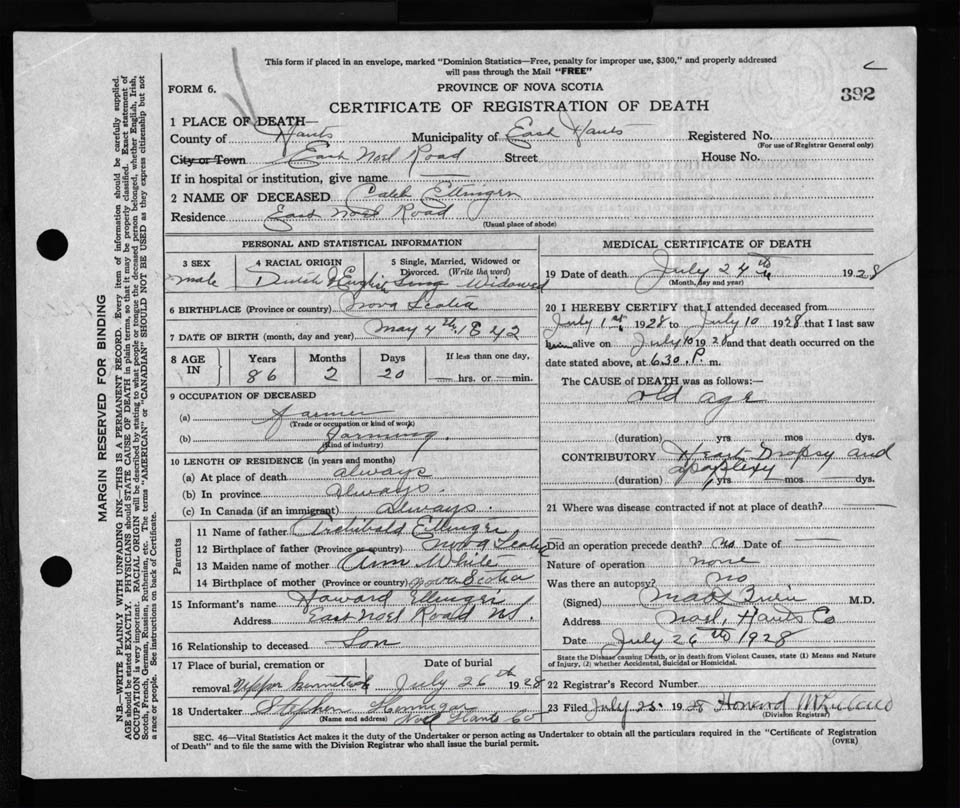 This form if placed in an envelope, marked "Dominion Statistics—Free, penalty for improper use, $300," and properly addressed
will pass through the Mail "FREE"
FORM 6.
PROVINCE OF NOVA SCOTIA
392
CERTIFICATE OF REGISTRATION OF DEATH
1 PLACE OF DEATH—
County of Hants Municipality of East Hants Registered No.
(For use of Registrar General only)
City or Town East Noel Road Street House No.
If in hospital or institution, give name —
2 NAME OF DECEASED Caleb Ettinger
Residence East Noel Road
(Usual place of abode)
PERSONAL AND STATISTICAL INFORMATION
3 SEX 4 RACIAL ORIGIN 5 Single, Married, Widowed or
Divorced. (Write the word)
male Dutch & English Widowed
6 BIRTHPLACE (Province or country) Nova Scotia
7 DATE OF BIRTH (month, day and year) May 4th 1842
8 AGE IN Years Months Days If less than one day,
86 2 20 — hrs. or — min.
9 OCCUPATION OF DECEASED
(a) Farmer
(Trade or occupation or kind of work)
(b) Farming.
(Kind of industry)
10 LENGTH OF RESIDENCE (in years and months)
(a) At place of death always
(b) In province always.
(c) In Canada (if an immigrant) always.
Parents
11 Name of father Archibald Ettinger
12 Birthplace of father (Province or country) Nova Scotia
13 Maiden name of mother Ann White
14 Birthplace of mother (Province or country) Nova Scotia
15 Informant's name Howard Ettinger
Address East Noel Road N.S.
16 Relationship to deceased Son
17 Place of burial, cremation or Date of burial
removal Upper Kennetcook July 26th 1928
18 Undertaker Stephen Hennigar
(Name and address) Noel Hants Co
MEDICAL CERTIFICATE OF DEATH
19 Date of death July 24th 1928
(Month, day and year)
20 I HEREBY CERTIFY that I attended deceased from
July 1st 1928 to July 10 1928 that I last saw
him alive on July 10 1928 and that death occurred on the
date stated above, at 6.30. P. m.
The CAUSE OF DEATH was as follows:—
old age
(duration) yrs. mos. dys.
CONTRIBUTORY Heart Dropsy and
apoplexy
(duration) yrs. mos. — dys.
21 Where was disease contracted if not at place of death? —
Did an operation precede death? No Date of —
Nature of operation none
Was there an autopsy? no
(Signed) M.D.
Address Noel, Hants Co
Date July 26th 1928
State the Disease causing Death, or in death from Violent Causes, state (1) Means and Nature
of Injury, (2) whether Accidental, Suicidal or Homicidal.
22 Registrar's Record Number
23 Filed July 25. 1928 Howard
(Division Registrar)
SEC. 46—Vital Statistics Act makes it the duty of the Undertaker or person acting as Undertaker to obtain all the particulars required in the "Certificate of Registration
of Death" and to file the same with the Division Registrar who shall issue the burial permit.
(OVER)
MARGIN RESERVED FOR BINDING
N.B.—WRITE PLAINLY WITH UNFADING INK—THIS IS A PERMANENT RECORD. Every item of information should be carefully supplied.
AGE should be stated EXACTLY. PHYSICIANS should STATE CAUSE OF DEATH in plain terms, so that it may be properly classified. Exact statement of
OCCUPATION is very important. RACIAL ORIGIN will be described by stating to what people or tongue the deceased person belonged, whether English, Irish,
Scotch, French, German, Russian, Ruthenian, etc. The terms "AMERICAN" or "CANADIAN" SHOULD NOT BE USED as they express citizenship but not
a race or people. See instructions on back of Certificate.